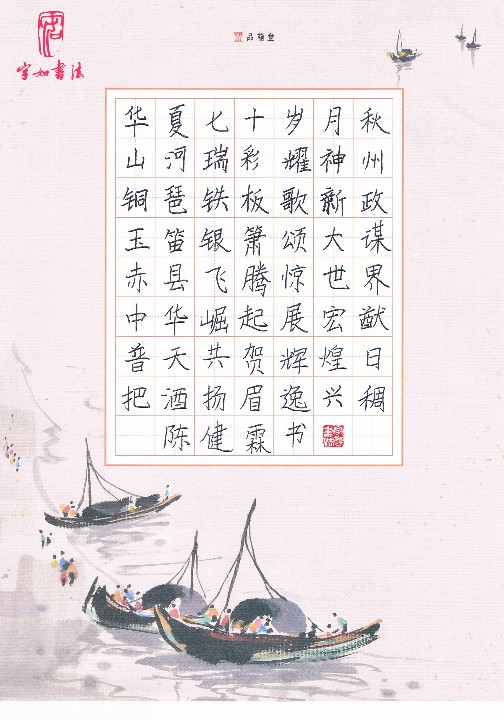 品翰堂
字如書法
华夏七十岁月秋
山河瑞彩耀神州
铜琶铁板歌新政
玉笛银箫颂大谋
赤县飞腾惊世界
中华崛起展宏猷
普天共贺辉煌日
把酒扬眉逸兴稠
陈健霖书